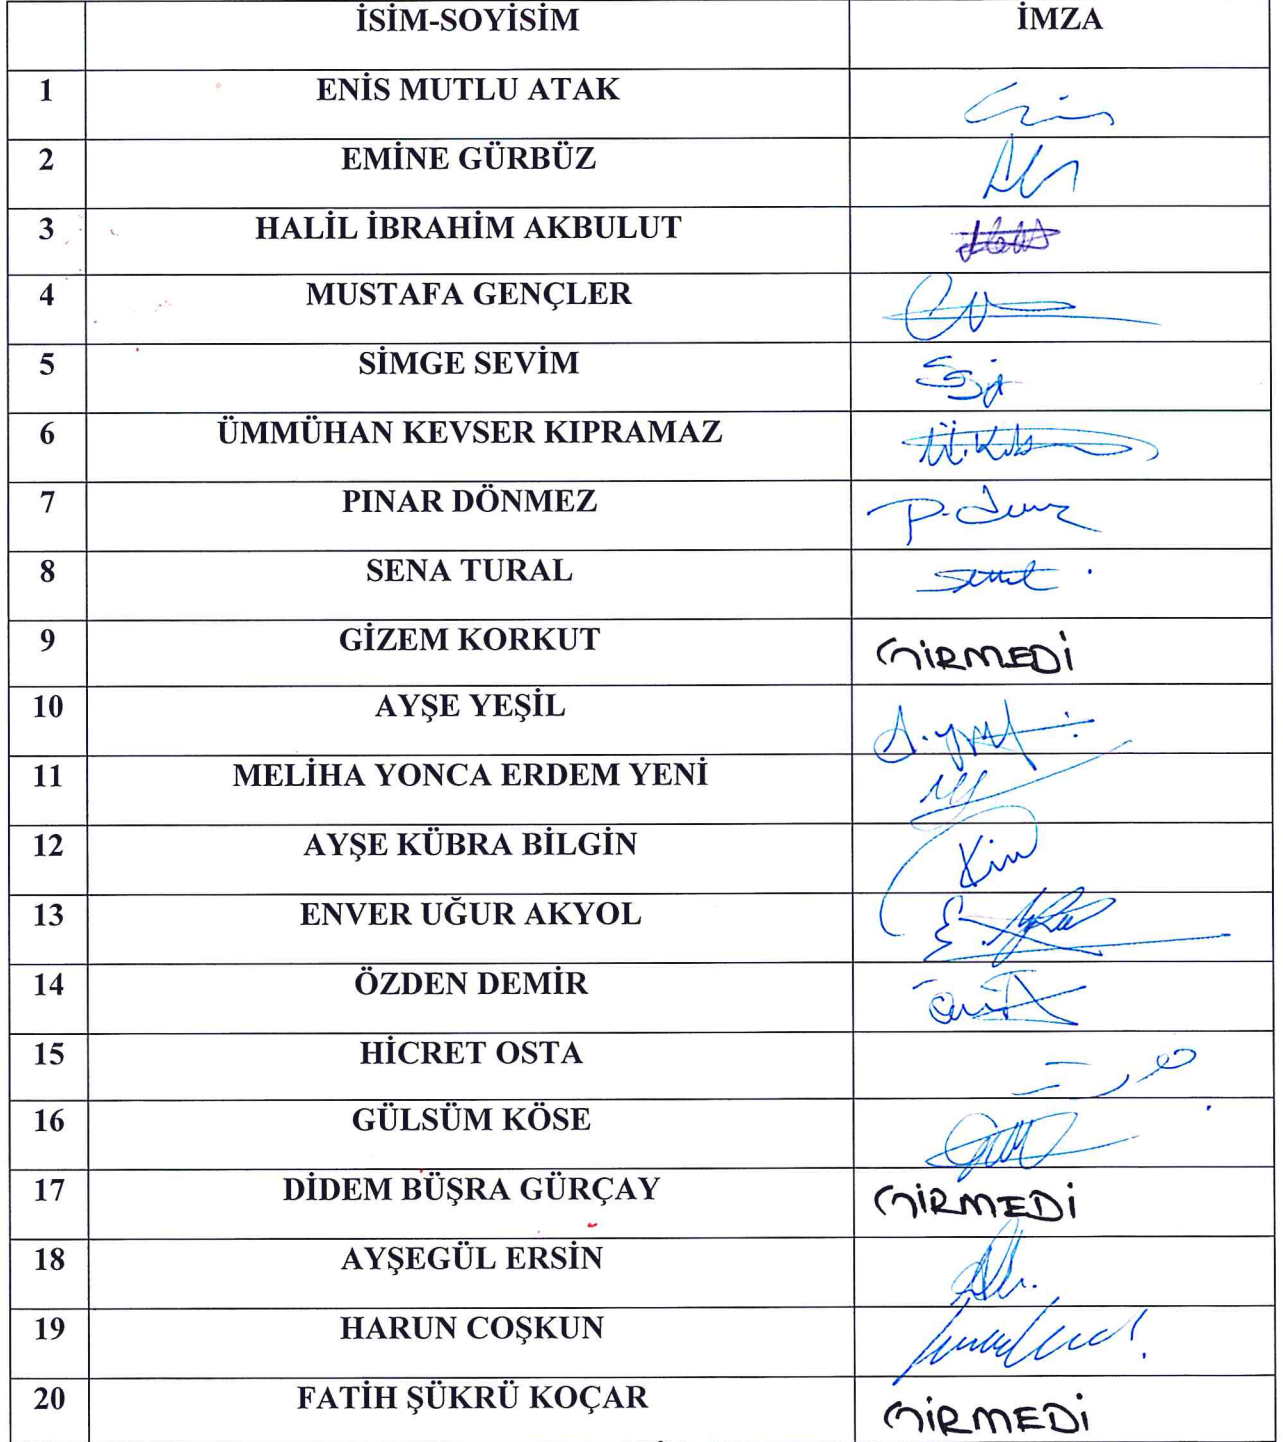 İSİM-SOYİSİM İMZA
1 ENİS MUTLU ATAK
2 EMİNE GÜRBÜZ
3 HALİL İBRAHİM AKBULUT
4 MUSTAFA GENÇLER
5 SİMGE SEVİM
6 ÜMMÜHAN KEVSER KIPRAMAZ
7 PINAR DÖNMEZ
8 SENA TURAL
9 GİZEM KORKUT GİRMEDİ
10 AYŞE YEŞİL
11 MELİHA YONCA ERDEM YENİ
12 AYŞE KÜBRA BİLGİN
13 ENVER UĞUR AKYOL
14 ÖZDEN DEMİR
15 HİCRET OSTA
16 GÜLSÜM KÖSE
17 DİDEM BÜŞRA GÜRÇAY GİRMEDİ
18 AYŞEGÜL ERSİN
19 HARUN COŞKUN
20 FATİH ŞÜKRÜ KOÇAR GİRMEDİ